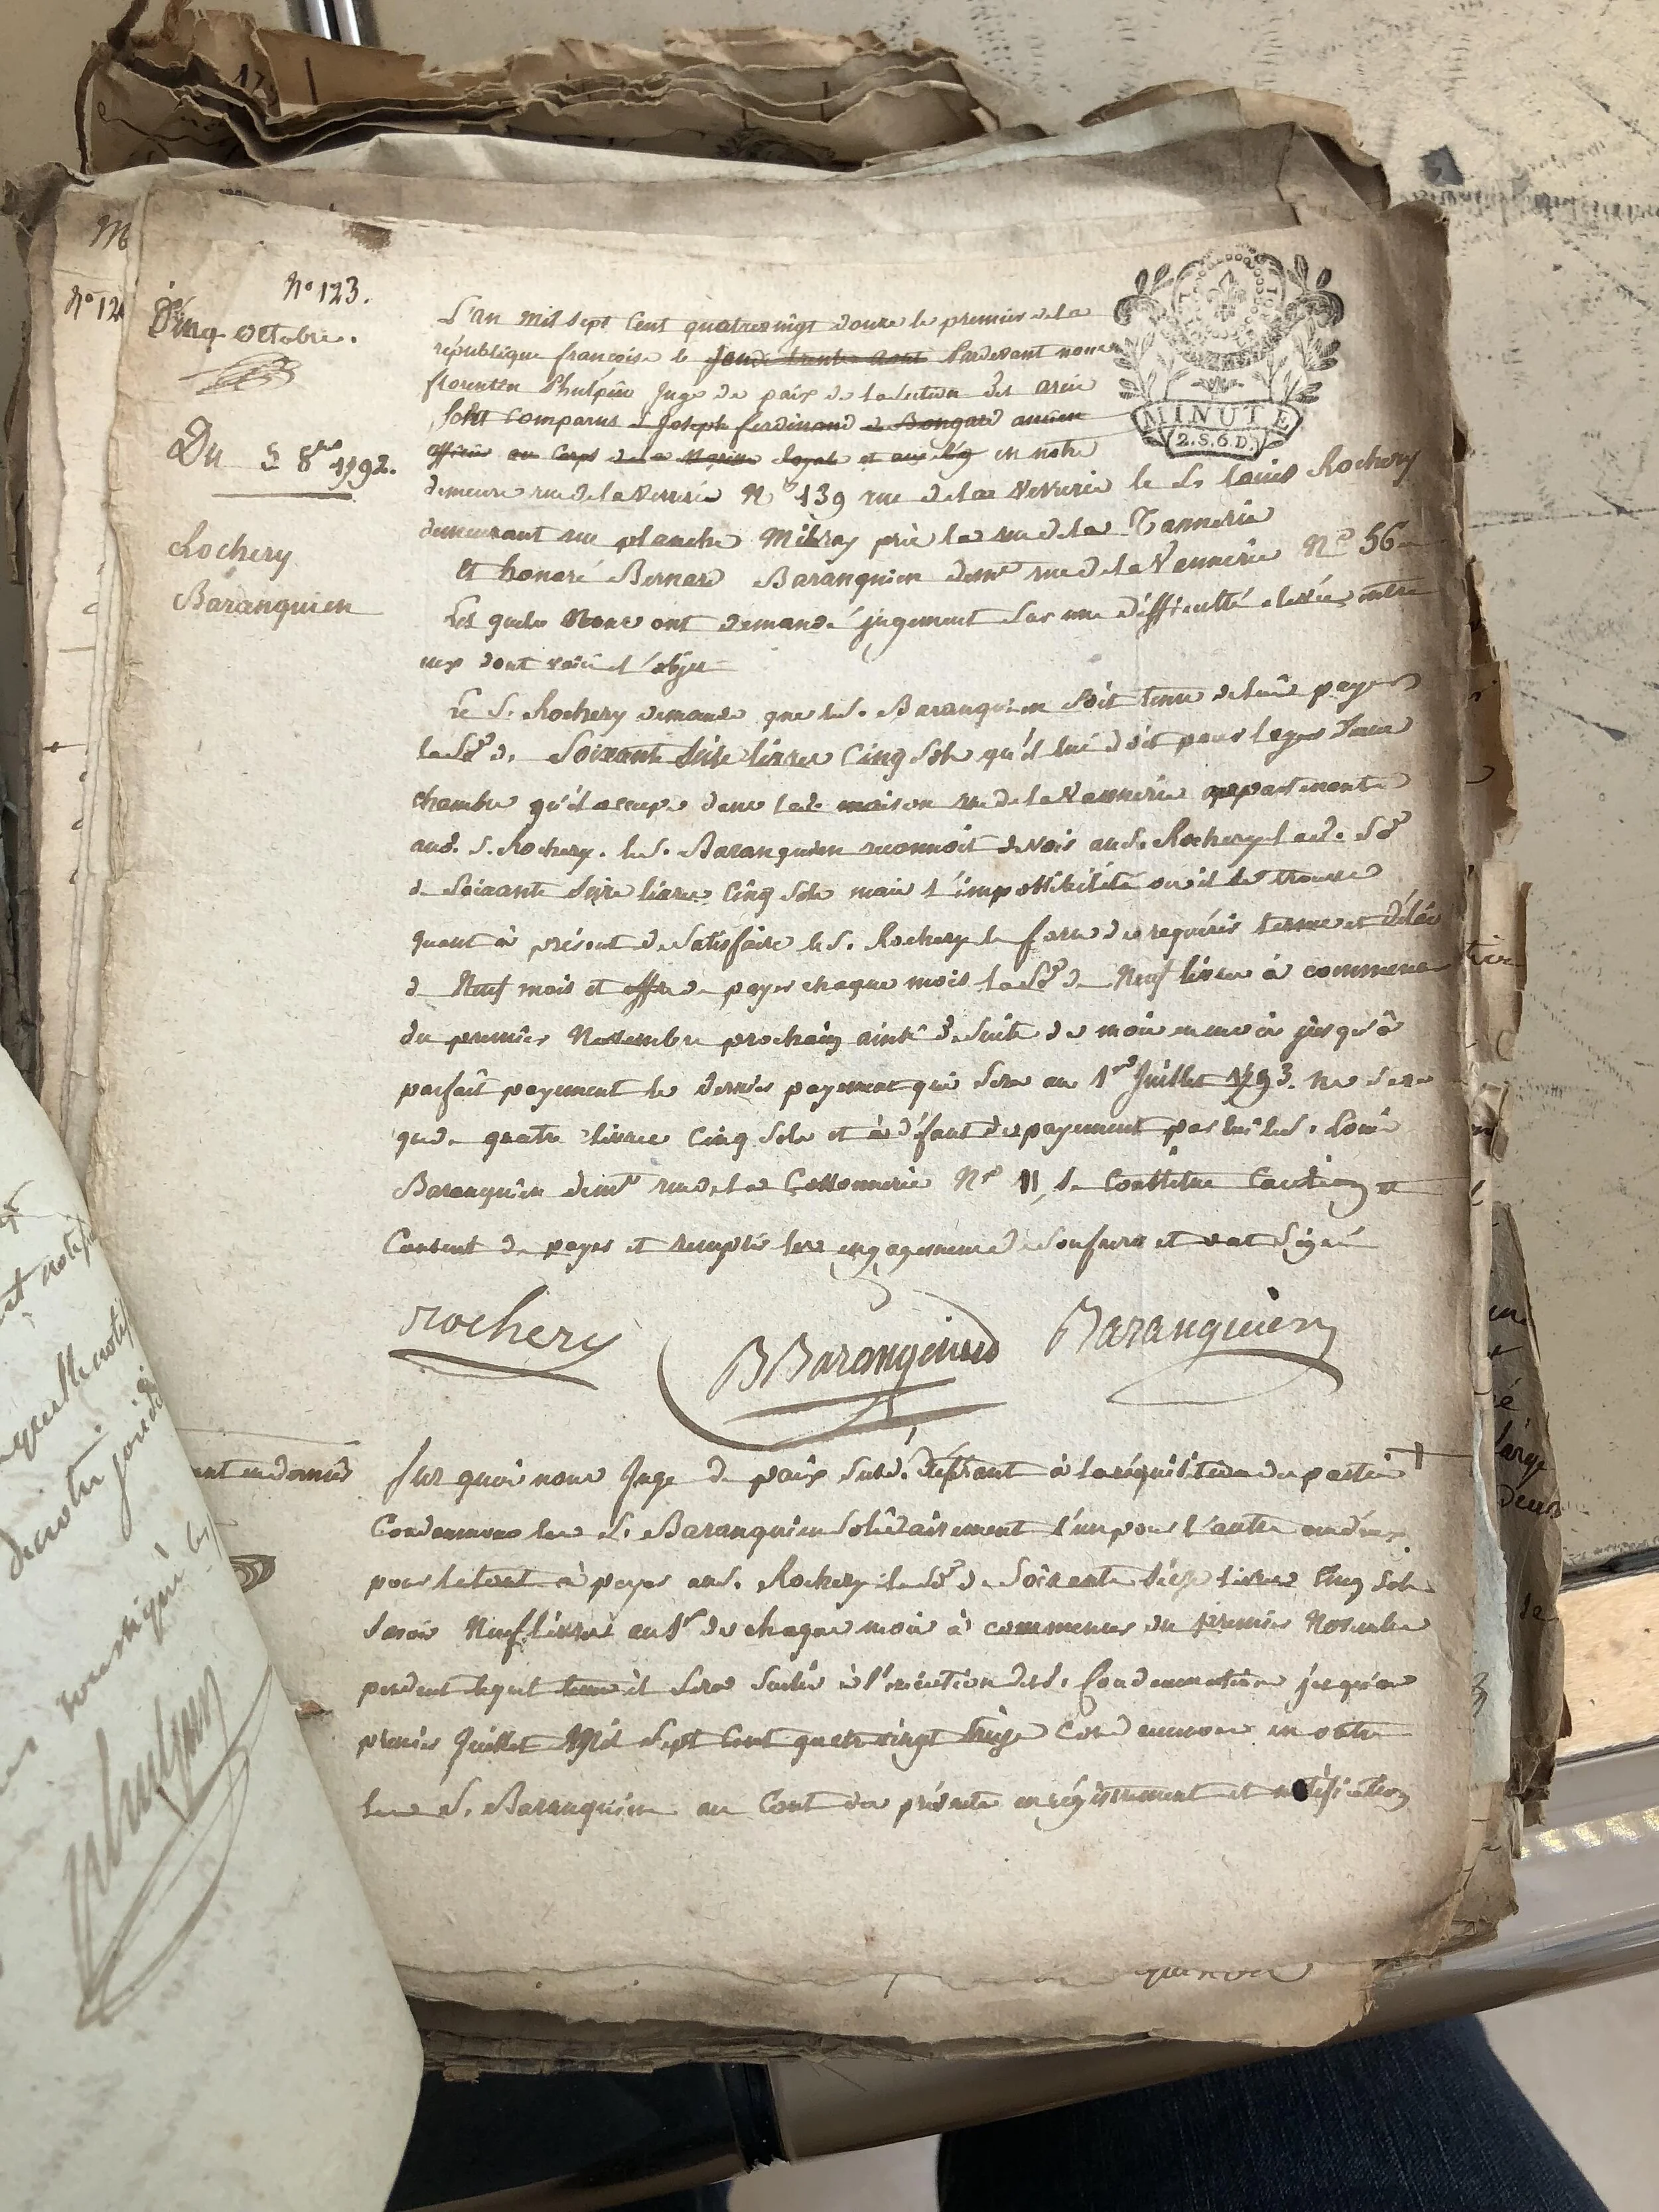 N° 123.
Cinq Octobre.
Du 5 8bre 1792.
Rochery
Baranquien
MINUTE
2.S.6D.
L'an mil sept cent quatrevingt douze le premier de la
république françoise le jeudi trente aout Pardevant nous
florentin Phulpin Juge de paix de la section des arcis
sont comparus Joseph ferdinand de Bongard ancien
officier au Corps de la Marine Royale et en notre
demeure rue de la Verrerie N° 139 rue de la Verrerie le Sr Louis Rochery
demeurant rue planche Mibray près la rue de la Tannerie
Et honoré Bernard Baranquien demt rue de la Vannerie N° 56
Les quels Nous ont demandé jugement sur une difficulté élevée entre
eux dont voici l'objet
Le S. Rochery demande que le S. Baranquien soit tenu de lui payer
la Se de Soixante seize livres Cinq sols qu'il lui doit pour loyer d'une
chambre qu'il occupe dans lade maison rue de la Vannerie appartenante
aud. S. Rochery. le S. Baranquien reconnoit devoir au S. Rochery lade Se
de Soixante seize livres Cinq sols mais l'impossibilité ou il se trouve
quant à présent de satisfaire le S. Rochery le force de requérir terme et délai
de Neuf mois et offre de payer chaque mois la Se de Neuf livres à commencer
du premier Novembre prochain ainsi de suite de mois en mois jusqu'à
parfait payement le dernier payement qui sera au 1er Juillet 1793. ne sera
que de quatre livres Cinq sols et à défaut de payement par lui le S. Louis
Baranquien demt rue de la Cossonnerie N° 11, se Constitue Caution et
Consent de payer et remplir les engagemens de son frere et ont Signé
Rochery
BBaranquien
Baranquien
Sur quoi nous Juge de paix susd. déférant à la réquisition des parties
Condamnons les S. Baranquien solidairement l'un pour l'autre
pour le tout à payer au S. Rochery la Se de Soixante seize livres Cinq sols
savoir Neuf livres au 1er de chaque mois à commencer du premier Novembre
pendant lequel tems il sera sursis à l'exécution desd. Condamnations jusqu'au
premier Juillet Mil sept Cent quatrevingt treize Condamnons en outre
les S. Baranquien au Cout des présentes enregistrement et notification